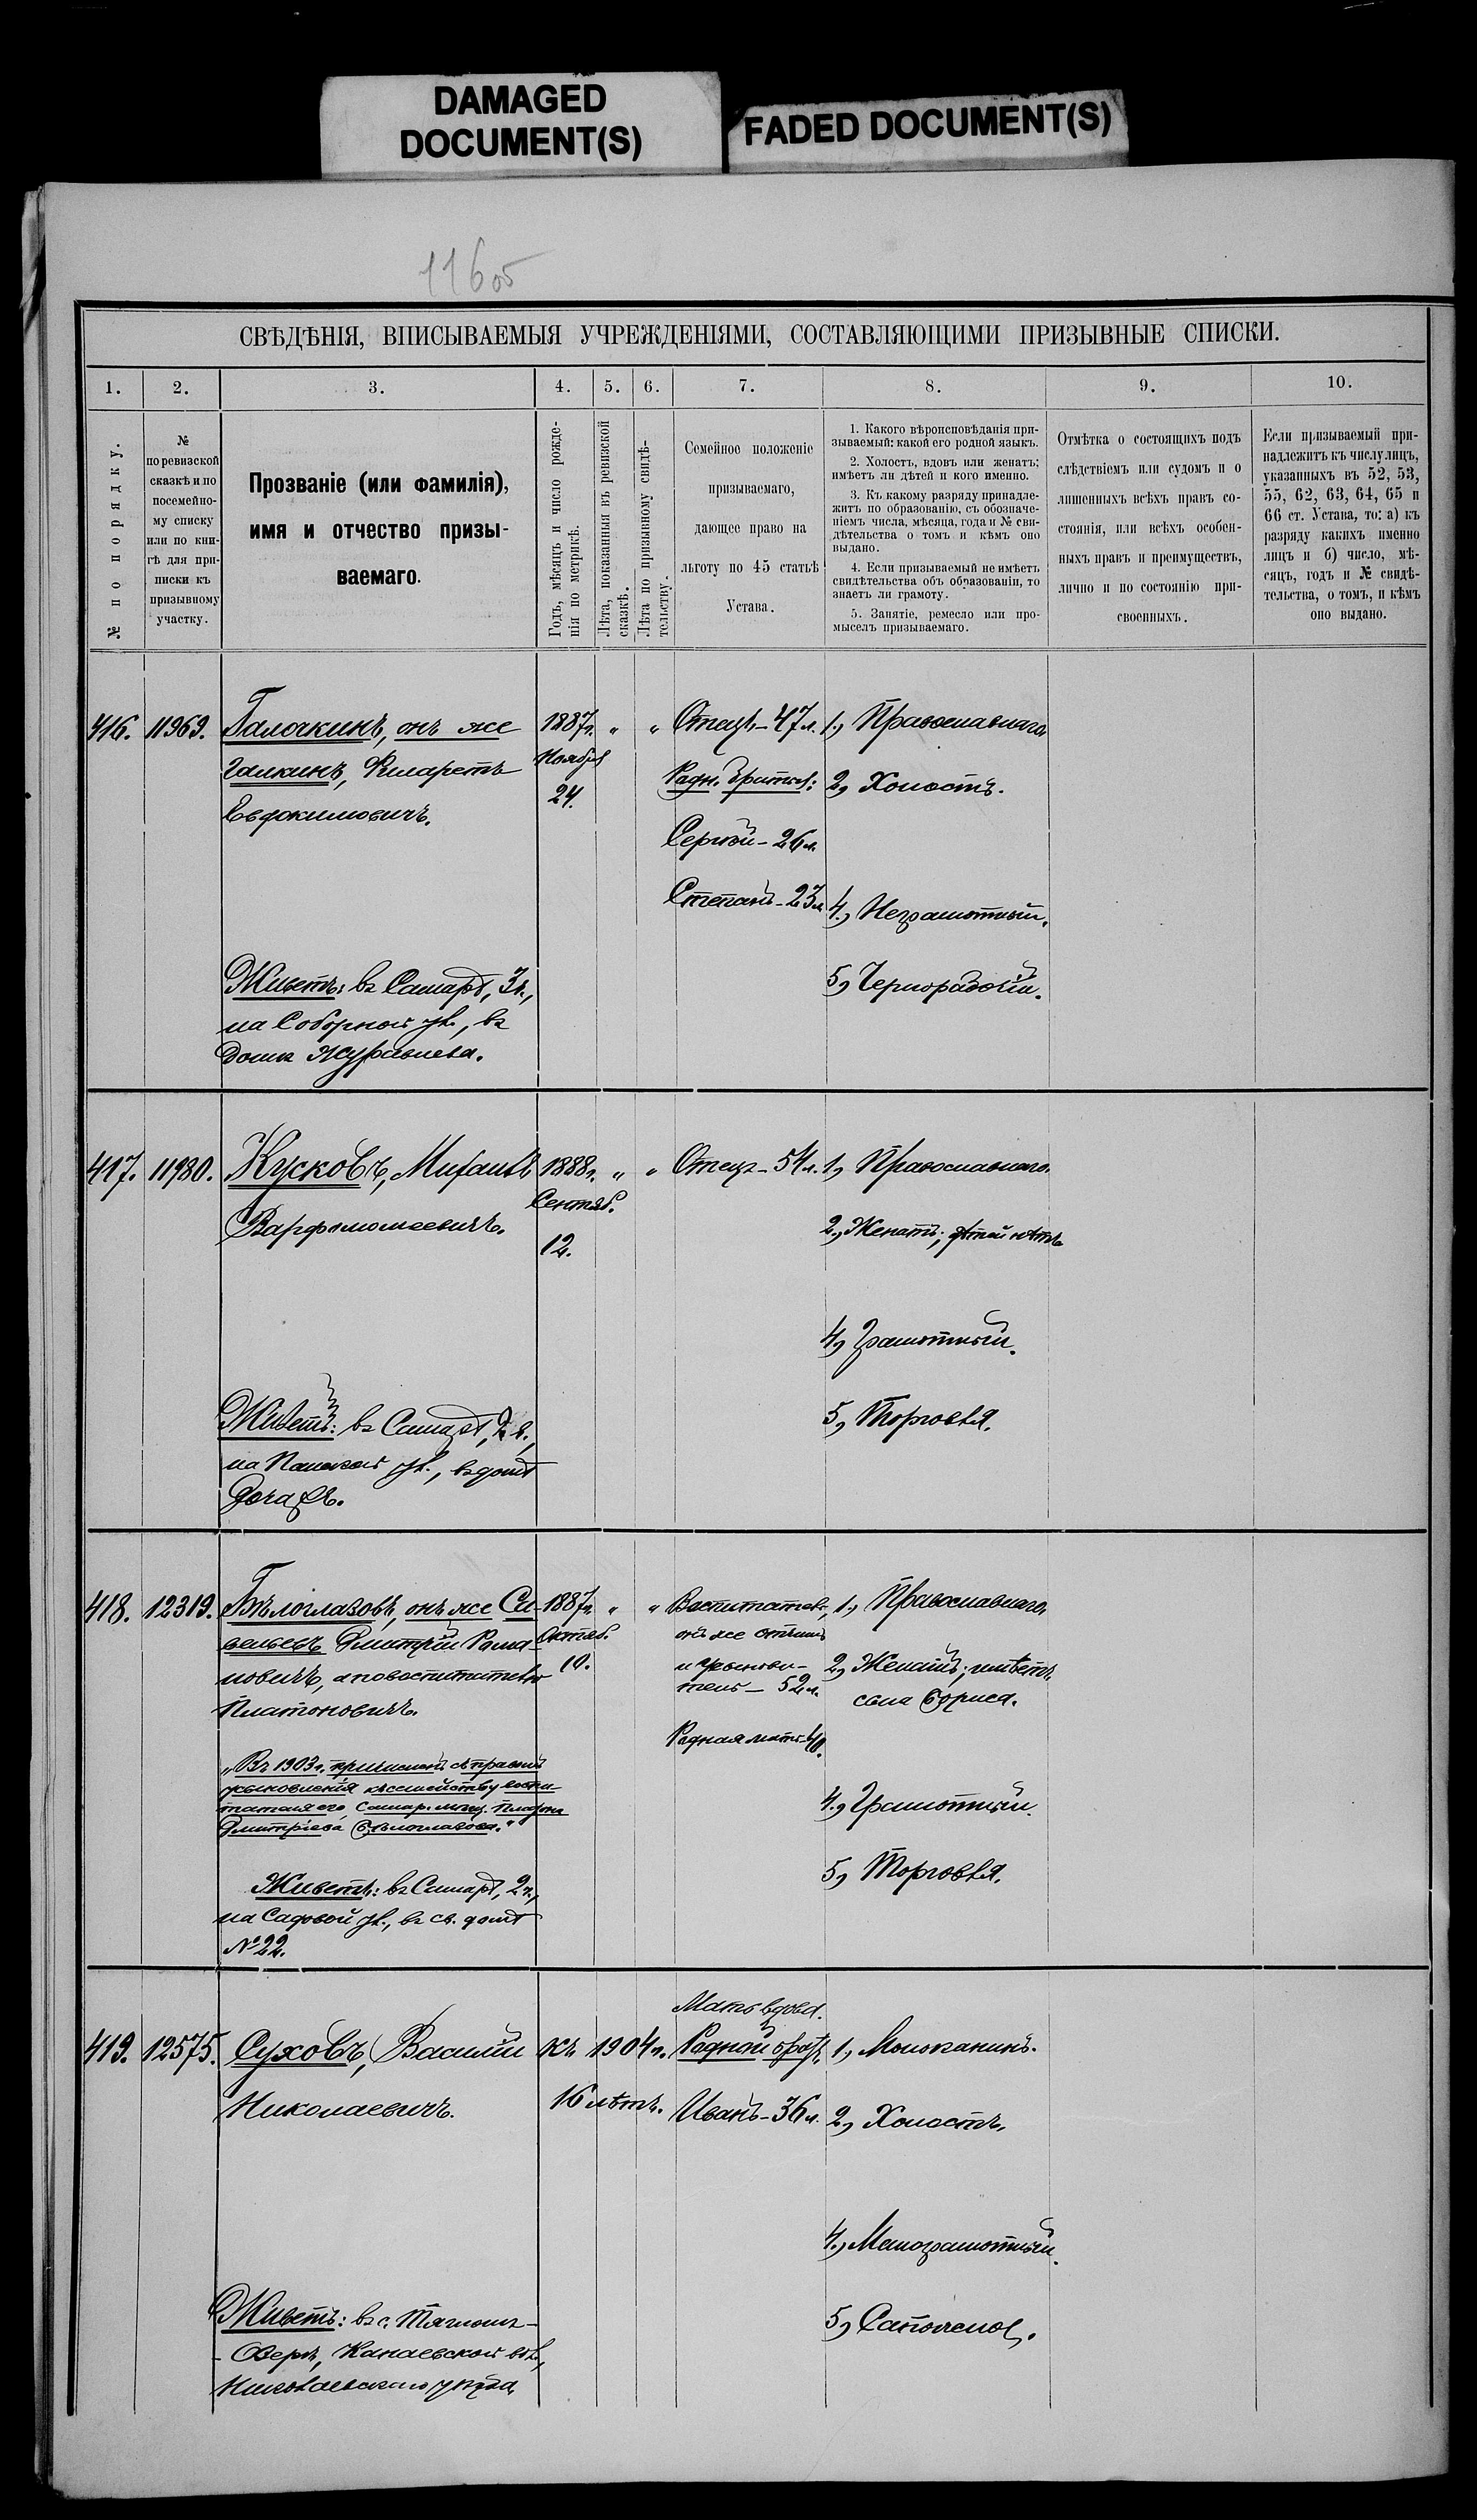 DAMAGED
DOCUMENT(S)
FADED DOCUMENT(S)
11605
СВѢДѢНІЯ, ВПИСЫВАЕМЫЯ УЧРЕЖДЕНІЯМИ, СОСТАВЛЯЮЩИМИ ПРИЗЫВНЫЕ СПИСКИ.
1.
2.
3.
4.
5.
6.
7.
8.
9.
10.
№ по порядку.
№
по ревизской
сказкѣ и по
посемейно-
му списку
или по кни-
гѣ для при-
писки къ
призывному
участку.
Прозваніе (или фамилія),
имя и отчество призы-
ваемаго.
Годъ, мѣсяцъ и число рожде-
нія по метрикѣ.
Лѣта, показанныя въ ревизской
сказкѣ.
Лѣта по призывному свидѣ-
тельству.
Семейное положеніе
призываемаго,
дающее право на
льготу по 45 статьѣ
Устава.
1. Какого вѣроисповѣданія при-
зываемый: какой его родной языкъ.
2. Холостъ, вдовъ или женатъ;
имѣетъ ли дѣтей и кого именно.
3. Къ какому разряду принадле-
житъ по образованію, съ обозначе-
ніемъ числа, мѣсяца, года и № сви-
дѣтельства о томъ и кѣмъ оно
выдано.
4. Если призываемый не имѣетъ
свидѣтельства объ образованіи, то
знаетъ ли грамоту.
5. Занятіе, ремесло или про-
мыселъ призываемаго.
Отмѣтка о состоящихъ подъ
слѣдствіемъ или судомъ и о
лишенныхъ всѣхъ правъ со-
стоянія, или всѣхъ особен-
ныхъ правъ и преимуществъ,
лично и по состоянію при-
своенныхъ.
Если призываемый при-
надлежитъ къ числу лицъ,
указанныхъ въ 52, 53,
55, 62, 63, 64, 65 и
66 ст. Устава, то: а) къ
разряду какихъ именно
лицъ и б) число, мѣ-
сяцъ, годъ и № свидѣ-
тельства, о томъ, и кѣмъ
оно выдано.
416.
11969.
Галочкинъ, онъ же
Галкинъ, Филаретъ
Евдокимовичъ.
Живетъ: въ Самарѣ, 3 ч.,
на Соборной ул., въ
домѣ Журавлева.
1887 г.
Ноября
24.
"
"
Отецъ - 47 л.
Родн. братья:
Сергѣй - 26 л.
Степанъ - 23 л.
1, Православнаго.
2, Холостъ.
4, Неграмотный.
5, Чернорабочій.
417.
11980.
Кусковъ, Михаилъ
Варфоломеевичъ.
Живетъ: въ Самарѣ, 2 ч.,
на Панской ул., въ домѣ
1888 г.
Сентяб.
12.
"
"
Отецъ - 54 л.
1, Православнаго.
2, Женатъ; дѣтей нѣтъ.
4, Грамотный.
5, Торговля.
418.
12319.
Бѣлоглазовъ, онъ же Са-
вельевъ Дмитрій Рома-
новичъ, а по воспитателю
Платоновичъ.
„Въ 1903 г. причисленъ съ правами
усыновленія къ семейству воспи-
тателя его, Самар. мѣщ. Платона
Дмитріева Бѣлоглазова."
Живетъ: въ Самарѣ, 2 ч.,
на Садовой ул., въ св. домѣ
№ 22.
1887 г.
Октяб.
10.
"
"
Воспитатель,
онъ же отчимъ
и усынови-
тель - 52 л.
Родная мать - 40.
1, Православнаго.
2, Женатъ; имѣетъ
сына Бориса.
4, Грамотный.
5, Торговля.
419.
12575.
Суховъ, Василій
Николаевичъ.
Живетъ: въ с. Тягломъ-
Озерѣ, Канаевской вол.,
Николаевскаго уѣзда.
Къ 1904 г.
16 лѣтъ.
Мать вдова.
Родной братъ
Иванъ - 36 л.
1, Молоканинъ.
2, Холостъ.
4, Малограмотный.
5, Сапожное.